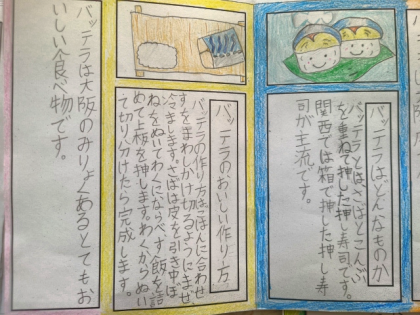 バッテラはどんなものか
バッテラとはさばとこんぶ
を重ねて押した押し寿司です。
関西では箱で押した押し寿
司が主流です。
バッテラのおいしい作り方
バッテラの作り方はごはんに合わせ
すをまわしかけ切るようにまぜ
冷まします。さばは皮を引き中ぼ
ねをぬいてわくにならべ、す飯を詰
めて上板を押します。わくからぬい
て切り分けたら完成します。
バッテラは大阪のみりょくあるとてもお
いしい食べ物です。